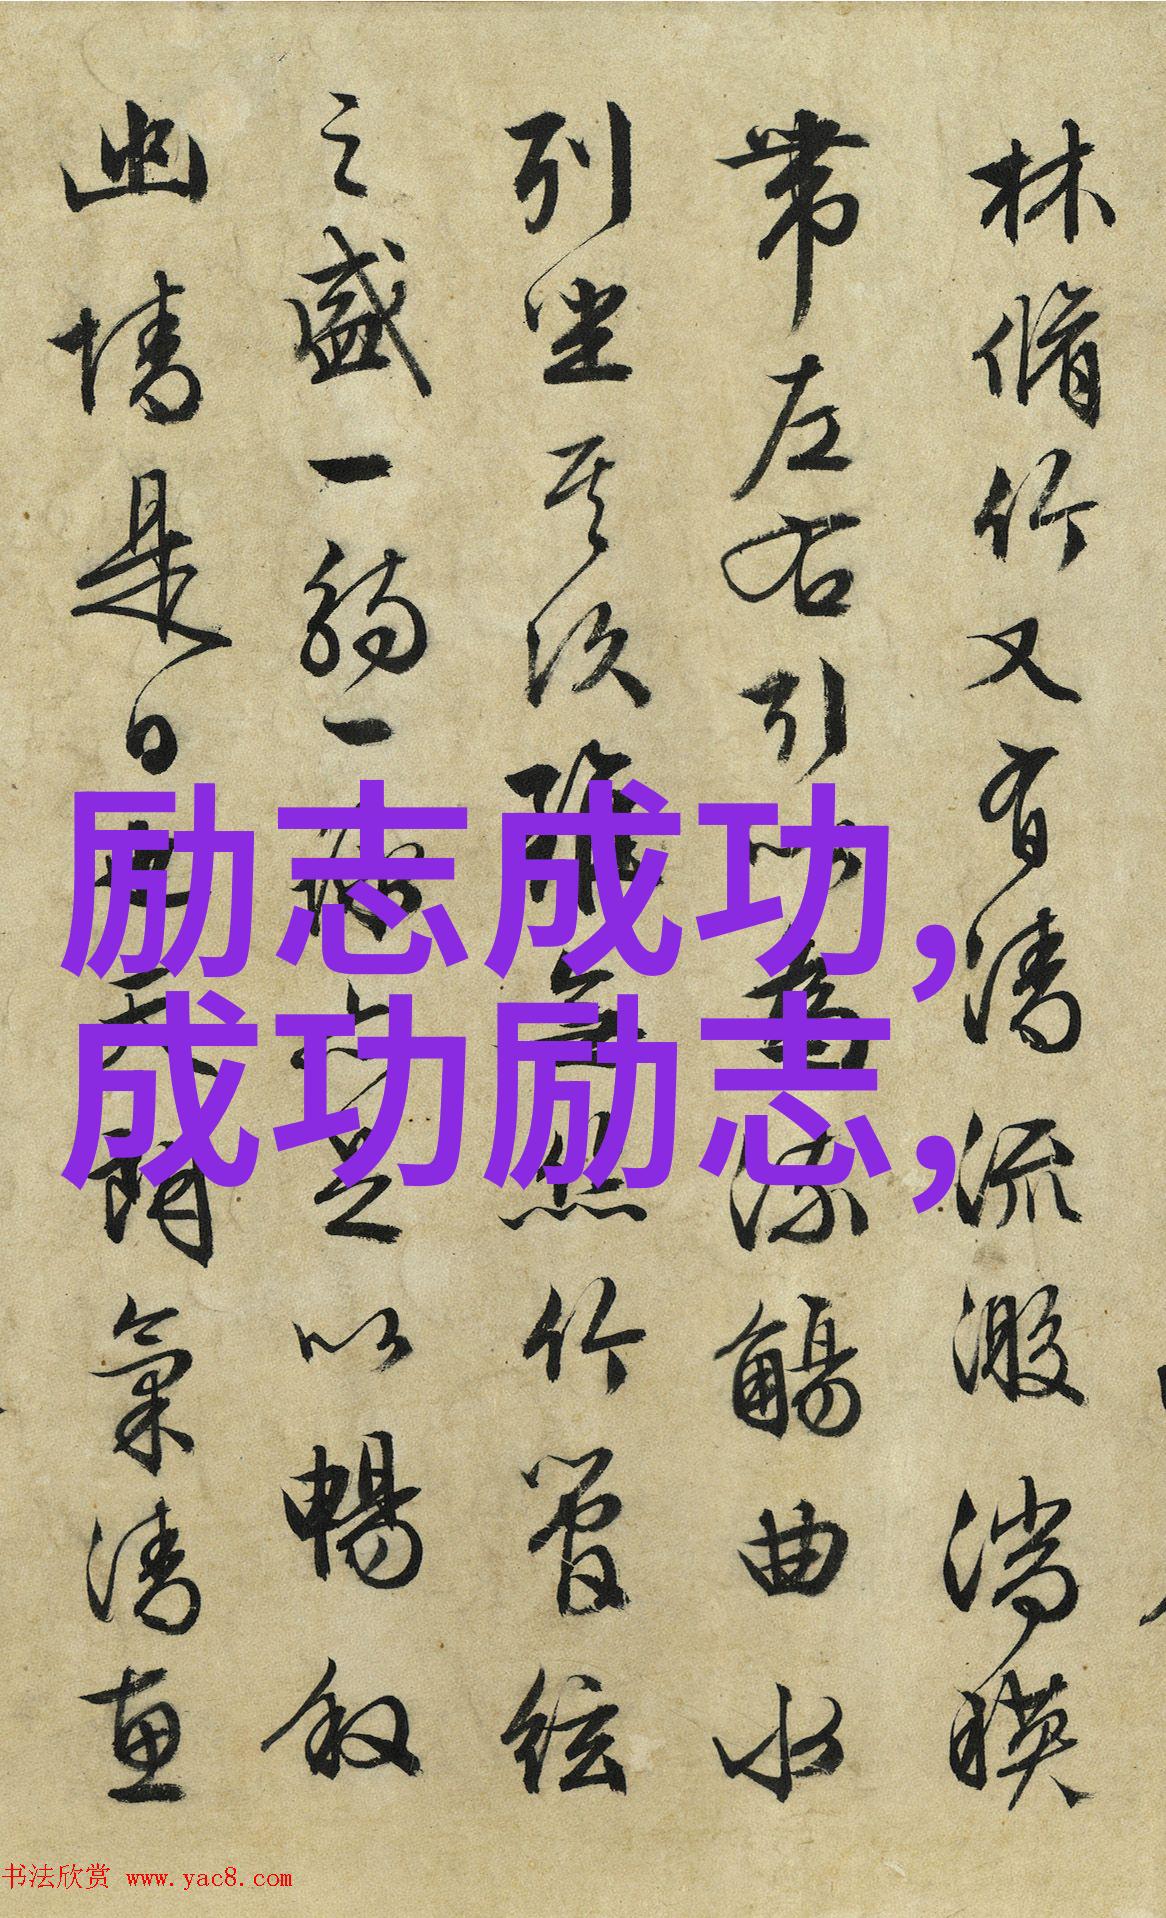 林脩竹又有清流激湍暎
帶左右引以為流觴曲水
列坐其次雖無絲竹管弦
之盛一觴一詠亦足以暢叙
幽情是日也天朗氣清惠
励志成功,
成功励志,
书法欣赏 www.yac8.com